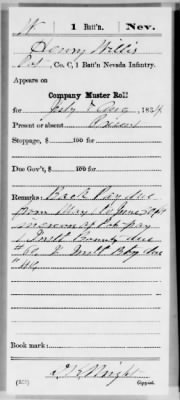 W | 1 Batt'n. | Nev.
Henry Willis
Pvt, Co. C, 1 Batt'n Nevada Infantry.
Appears on
Company Muster Roll
for July & Aug, 1864.
Present or absent Present
Stoppage, $ 100 for
Due Gov't, $ 100 for
Remarks: Back Pay due
from May
increase of pay
1 Instl Bounty due
2 Instl Bty due
Book mark:
Wright
(358) Copyist.